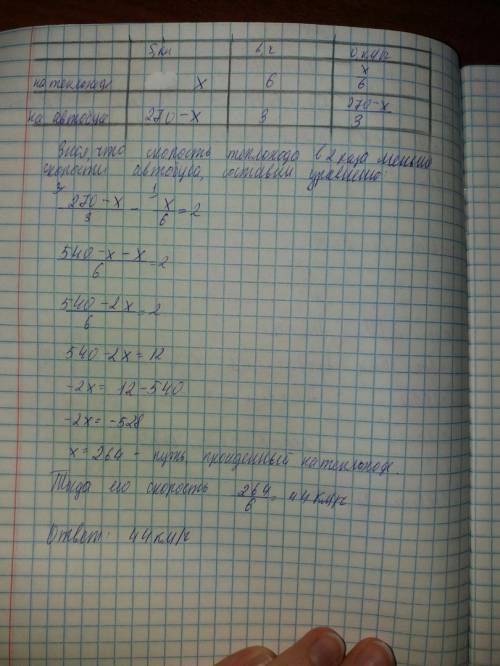 S, км t, ч v км/ч
на теплоходе x 6 x/6
на автобусе 270-x 3 270-x/3
Зная, что скорость теплохода в 2 раза меньше
скорости автобуса, составим уравнение:
270-x/3 - x/6 = 2
540-x-x/6 = 2
540-2x/6 = 2
540-2x = 12
-2x = 12-540
-2x = -528
x = 264 - путь, пройденный на теплоходе.
Тогда его скорость 264/6 = 44 км/ч
Ответ: 44 км/ч